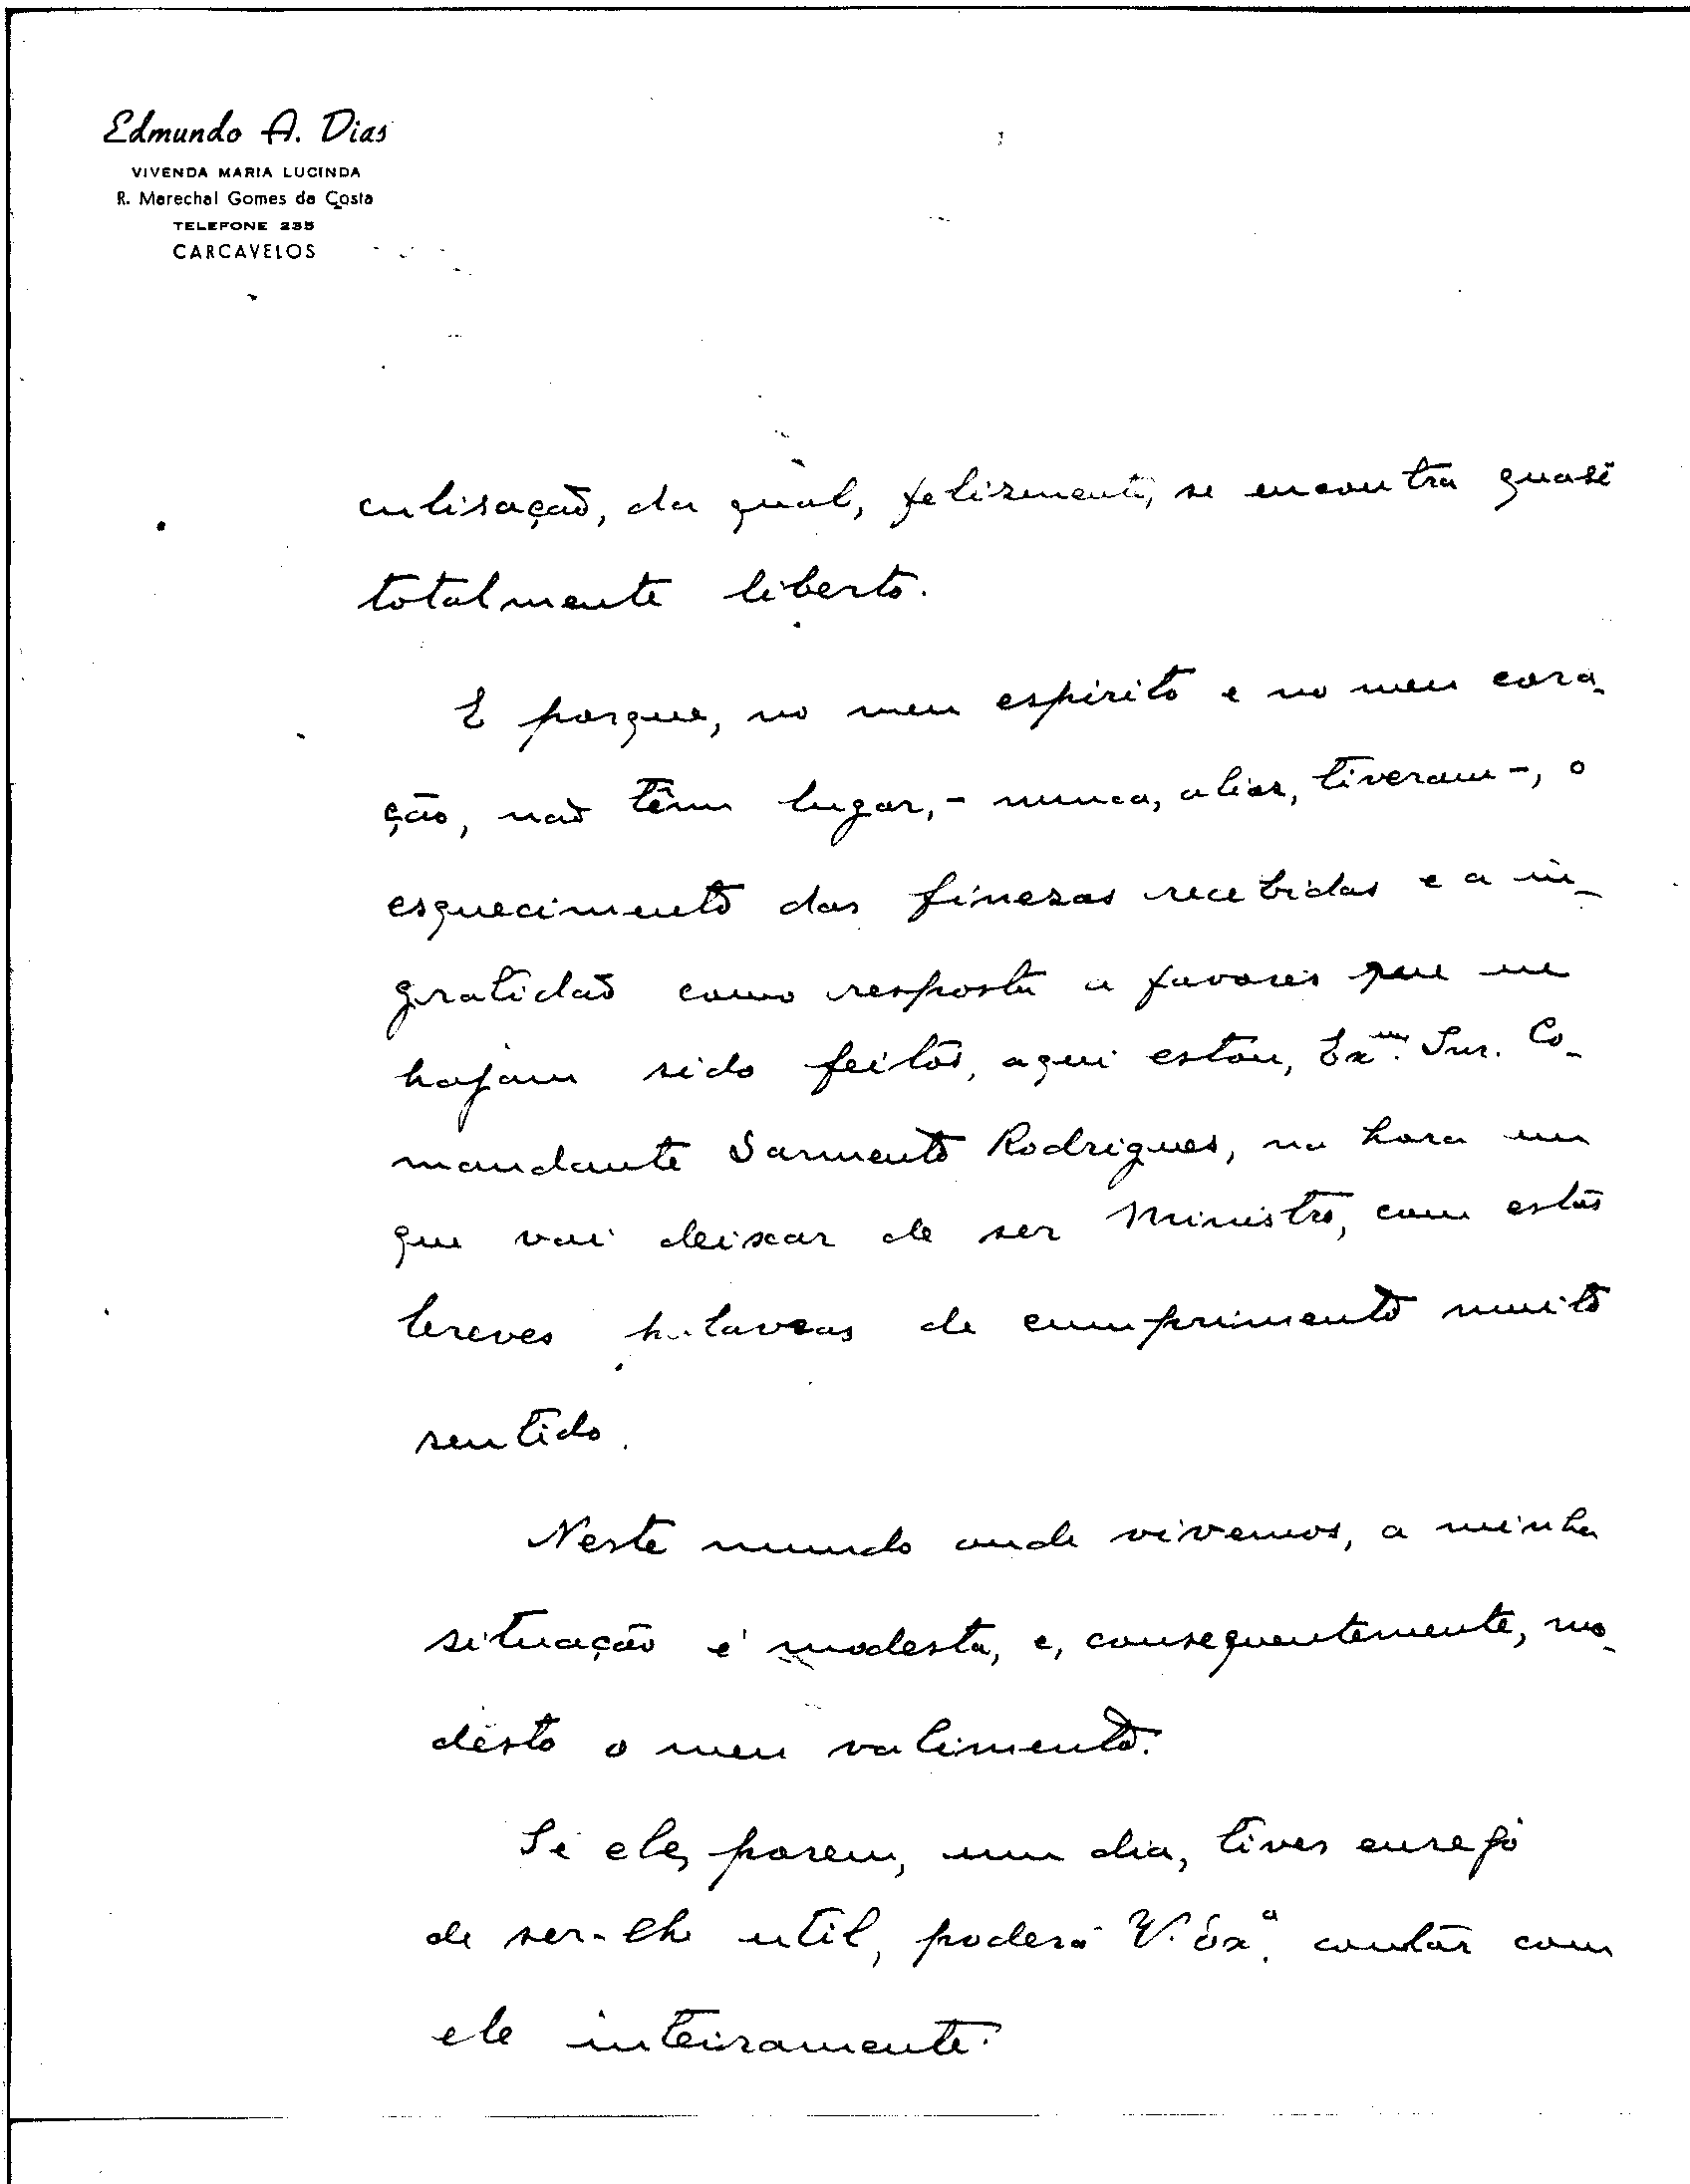 Edmundo A. Dias
VIVENDA MARIA LUCINDA
R. Marechal Gomes da Costa
TELEFONE 235
CARCAVELOS
culisação, da qual, felizmente, se encontra quasi
totalmente liberto.
E porque, no meu espirito e no meu cora-
ção, não têm lugar, - nunca, aliás, tiveram -, o
esquecimento das finezas recebidas e a in-
gratidão como resposta a favores que me
hajam sido feitos, aqui estou, Exmo. Snr. Co-
mandante Sarmento Rodrigues, na hora em
que vai deixar de ser Ministro, com estas
breves palavras de cumprimento muito
sentido.
Neste mundo onde vivemos, a minha
situação é modesta, e, consequentemente, mo-
desto o meu valimento.
Se ele, porem, um dia, tiver ensejo
de ser-lhe util, poderá V. Exª. contar com
ele inteiramente.